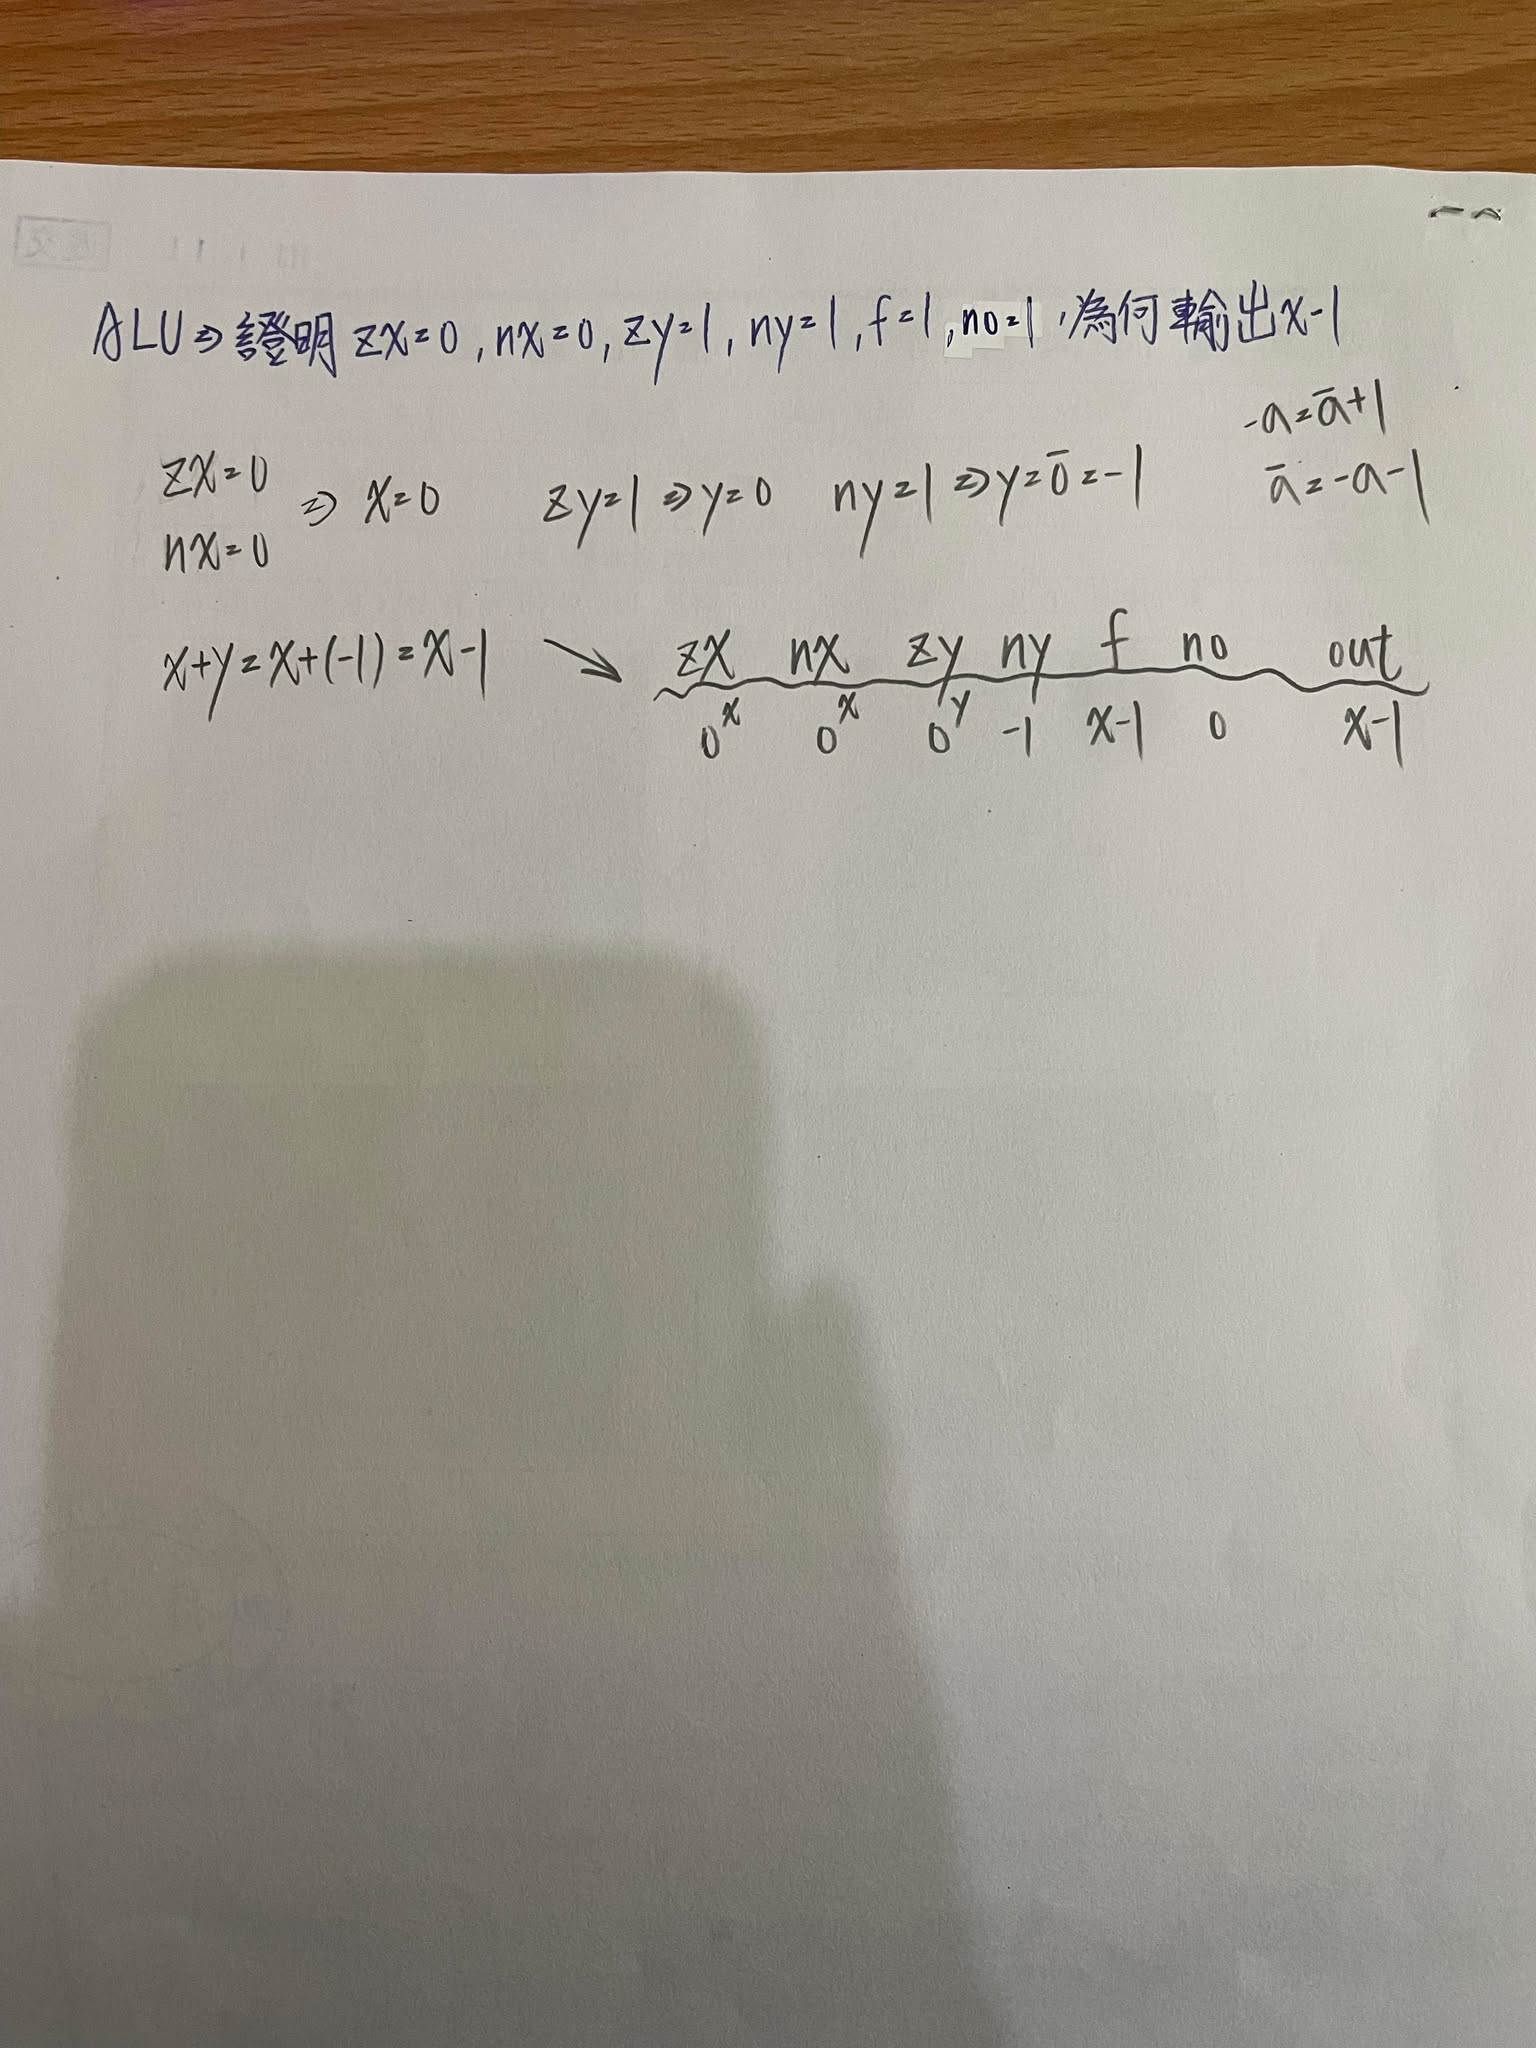 ALU⇒證明 zx=0, nx=0, zy=1, ny=1, f=1, no=1,為何輸出x-1
-a=ā+1
zx=0
nx=0 ⇒ x=0 zy=1⇒y=0 ny=1⇒y=0̄=-1 ā=-a-1
x+y=x+(-1)=x-1 ↘ zx nx zy ny f no out
0ˣ 0ˣ 0ʸ -1 x-1 0 x-1